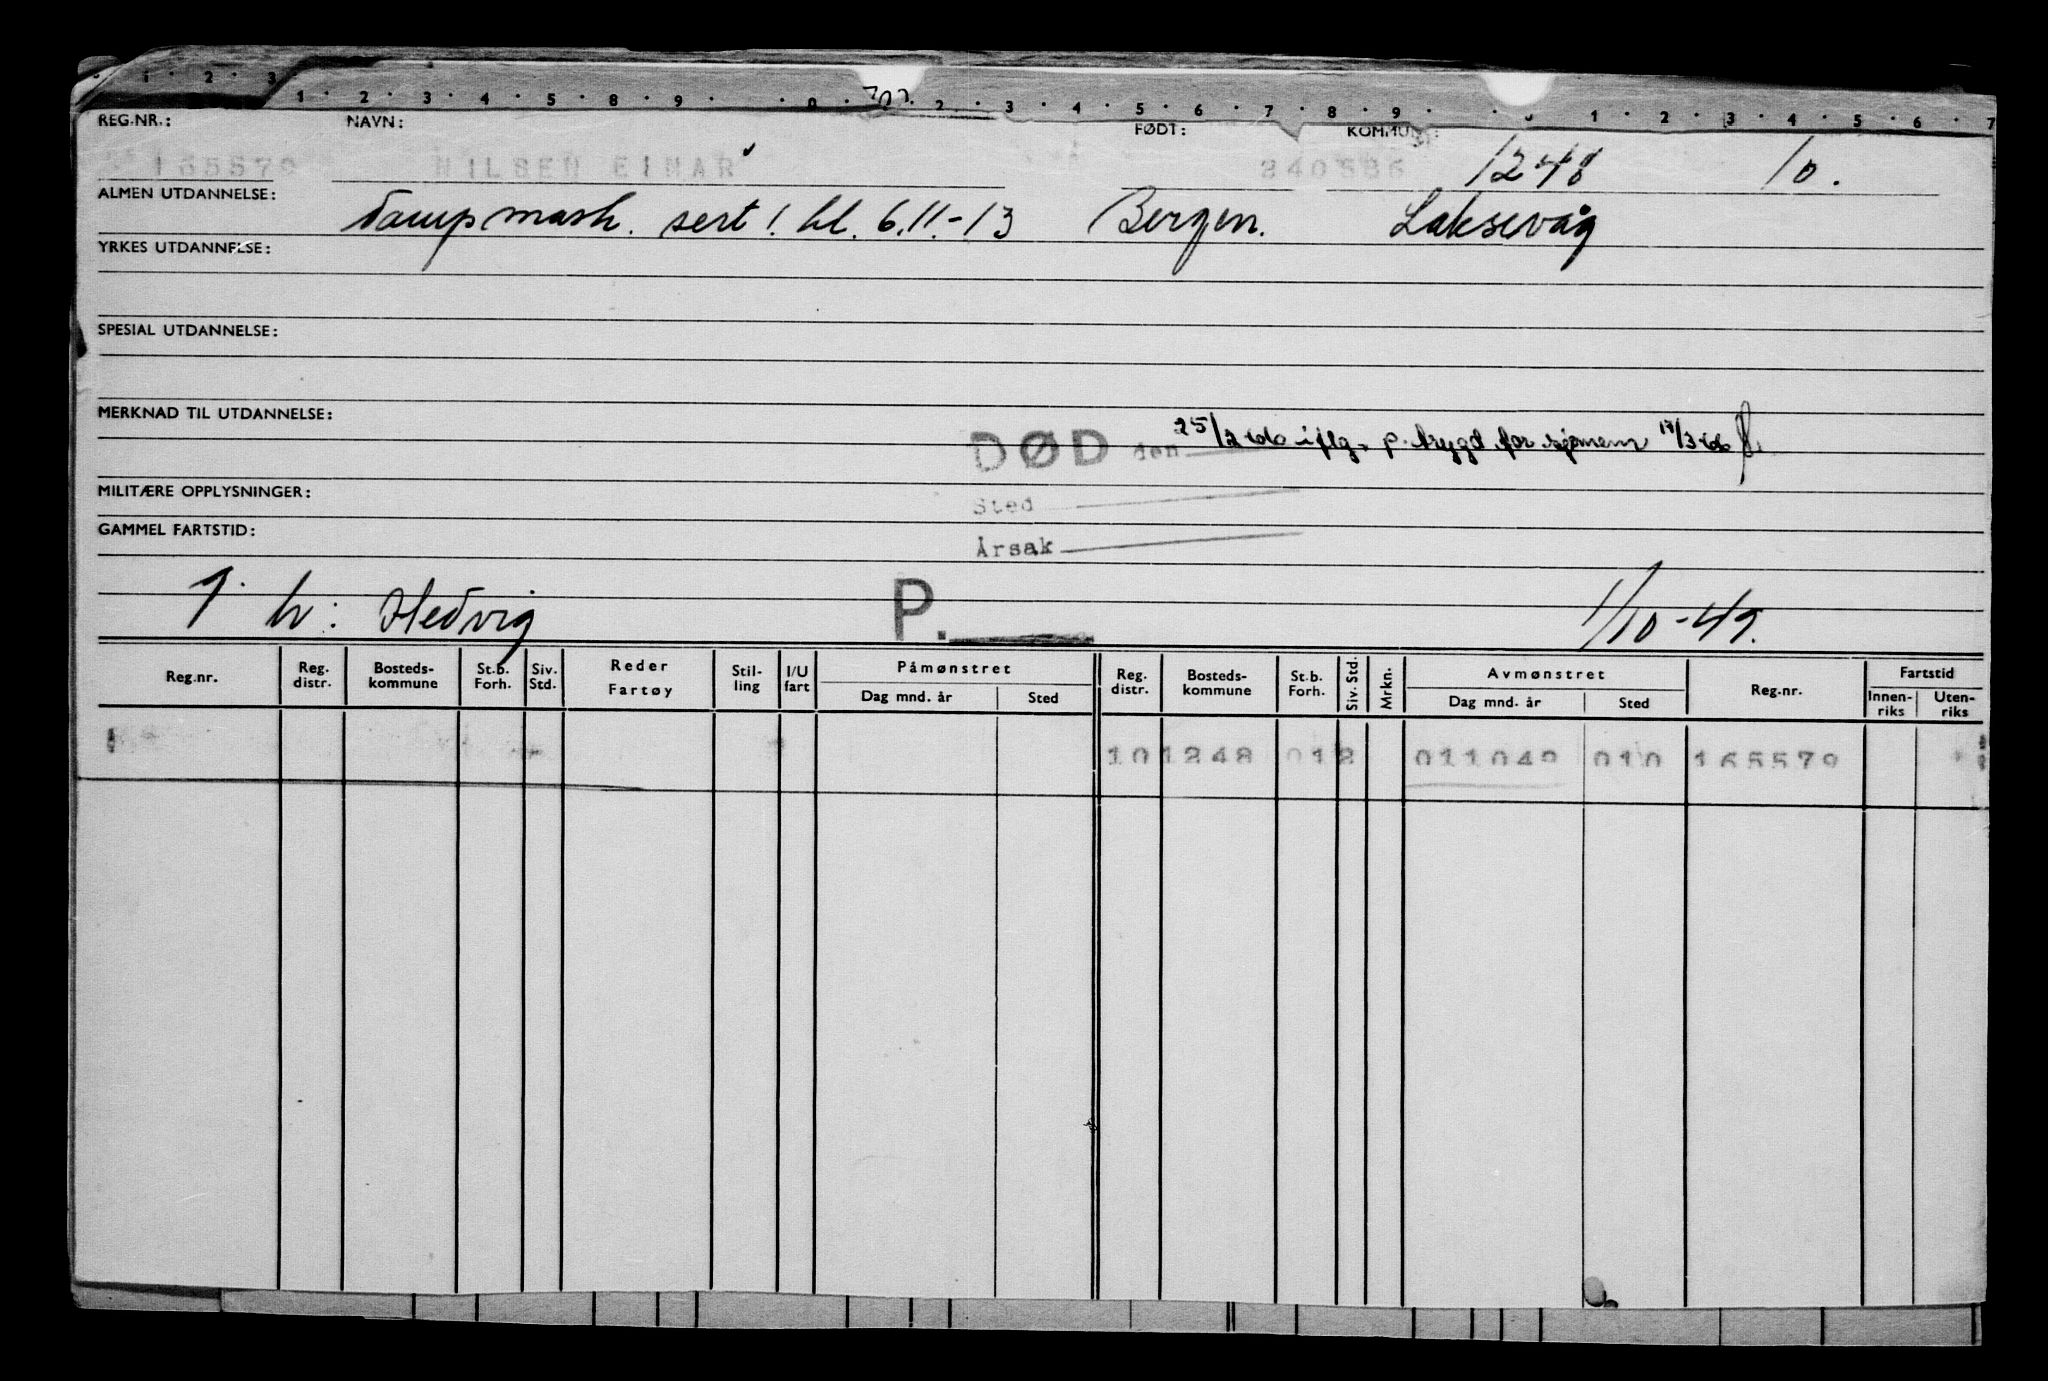 1 2 3
1 2 3 4 5 8 9 0 2 3 4 5 6 7 8 9 1 2 3 4 5 6 7
REG.NR.: NAVN: FØDT: KOMMUNE:
165579 NILSEN EINAR 1248 10.
ALMEN UTDANNELSE: Dampmask. sert 1. kl. 6.11.-13 Bergen. Laksevåg
YRKES UTDANNELSE:
SPESIAL UTDANNELSE:
MERKNAD TIL UTDANNELSE:
DØD den 25/2 66 iflg. p. trygd for sjømenn 17/3 66
MILITÆRE OPPLYSNINGER:
Sted
GAMMEL FARTSTID:
Årsak
g. h: Hedvig P. 1/10-49.
Reg.nr. Reg. distr. Bosteds-kommune St.b. Forh. Siv. Std. Reder Fartøy Stil-ling I/U fart Påmønstret Dag mnd. år Sted Reg. distr. Bosteds-kommune St.b. Forh. Siv. Std. Mrkn. Avmønstret Dag mnd. år Sted Reg.nr. Fartstid Innen-riks Uten-riks
10 1248 01 2 011049 010 165579